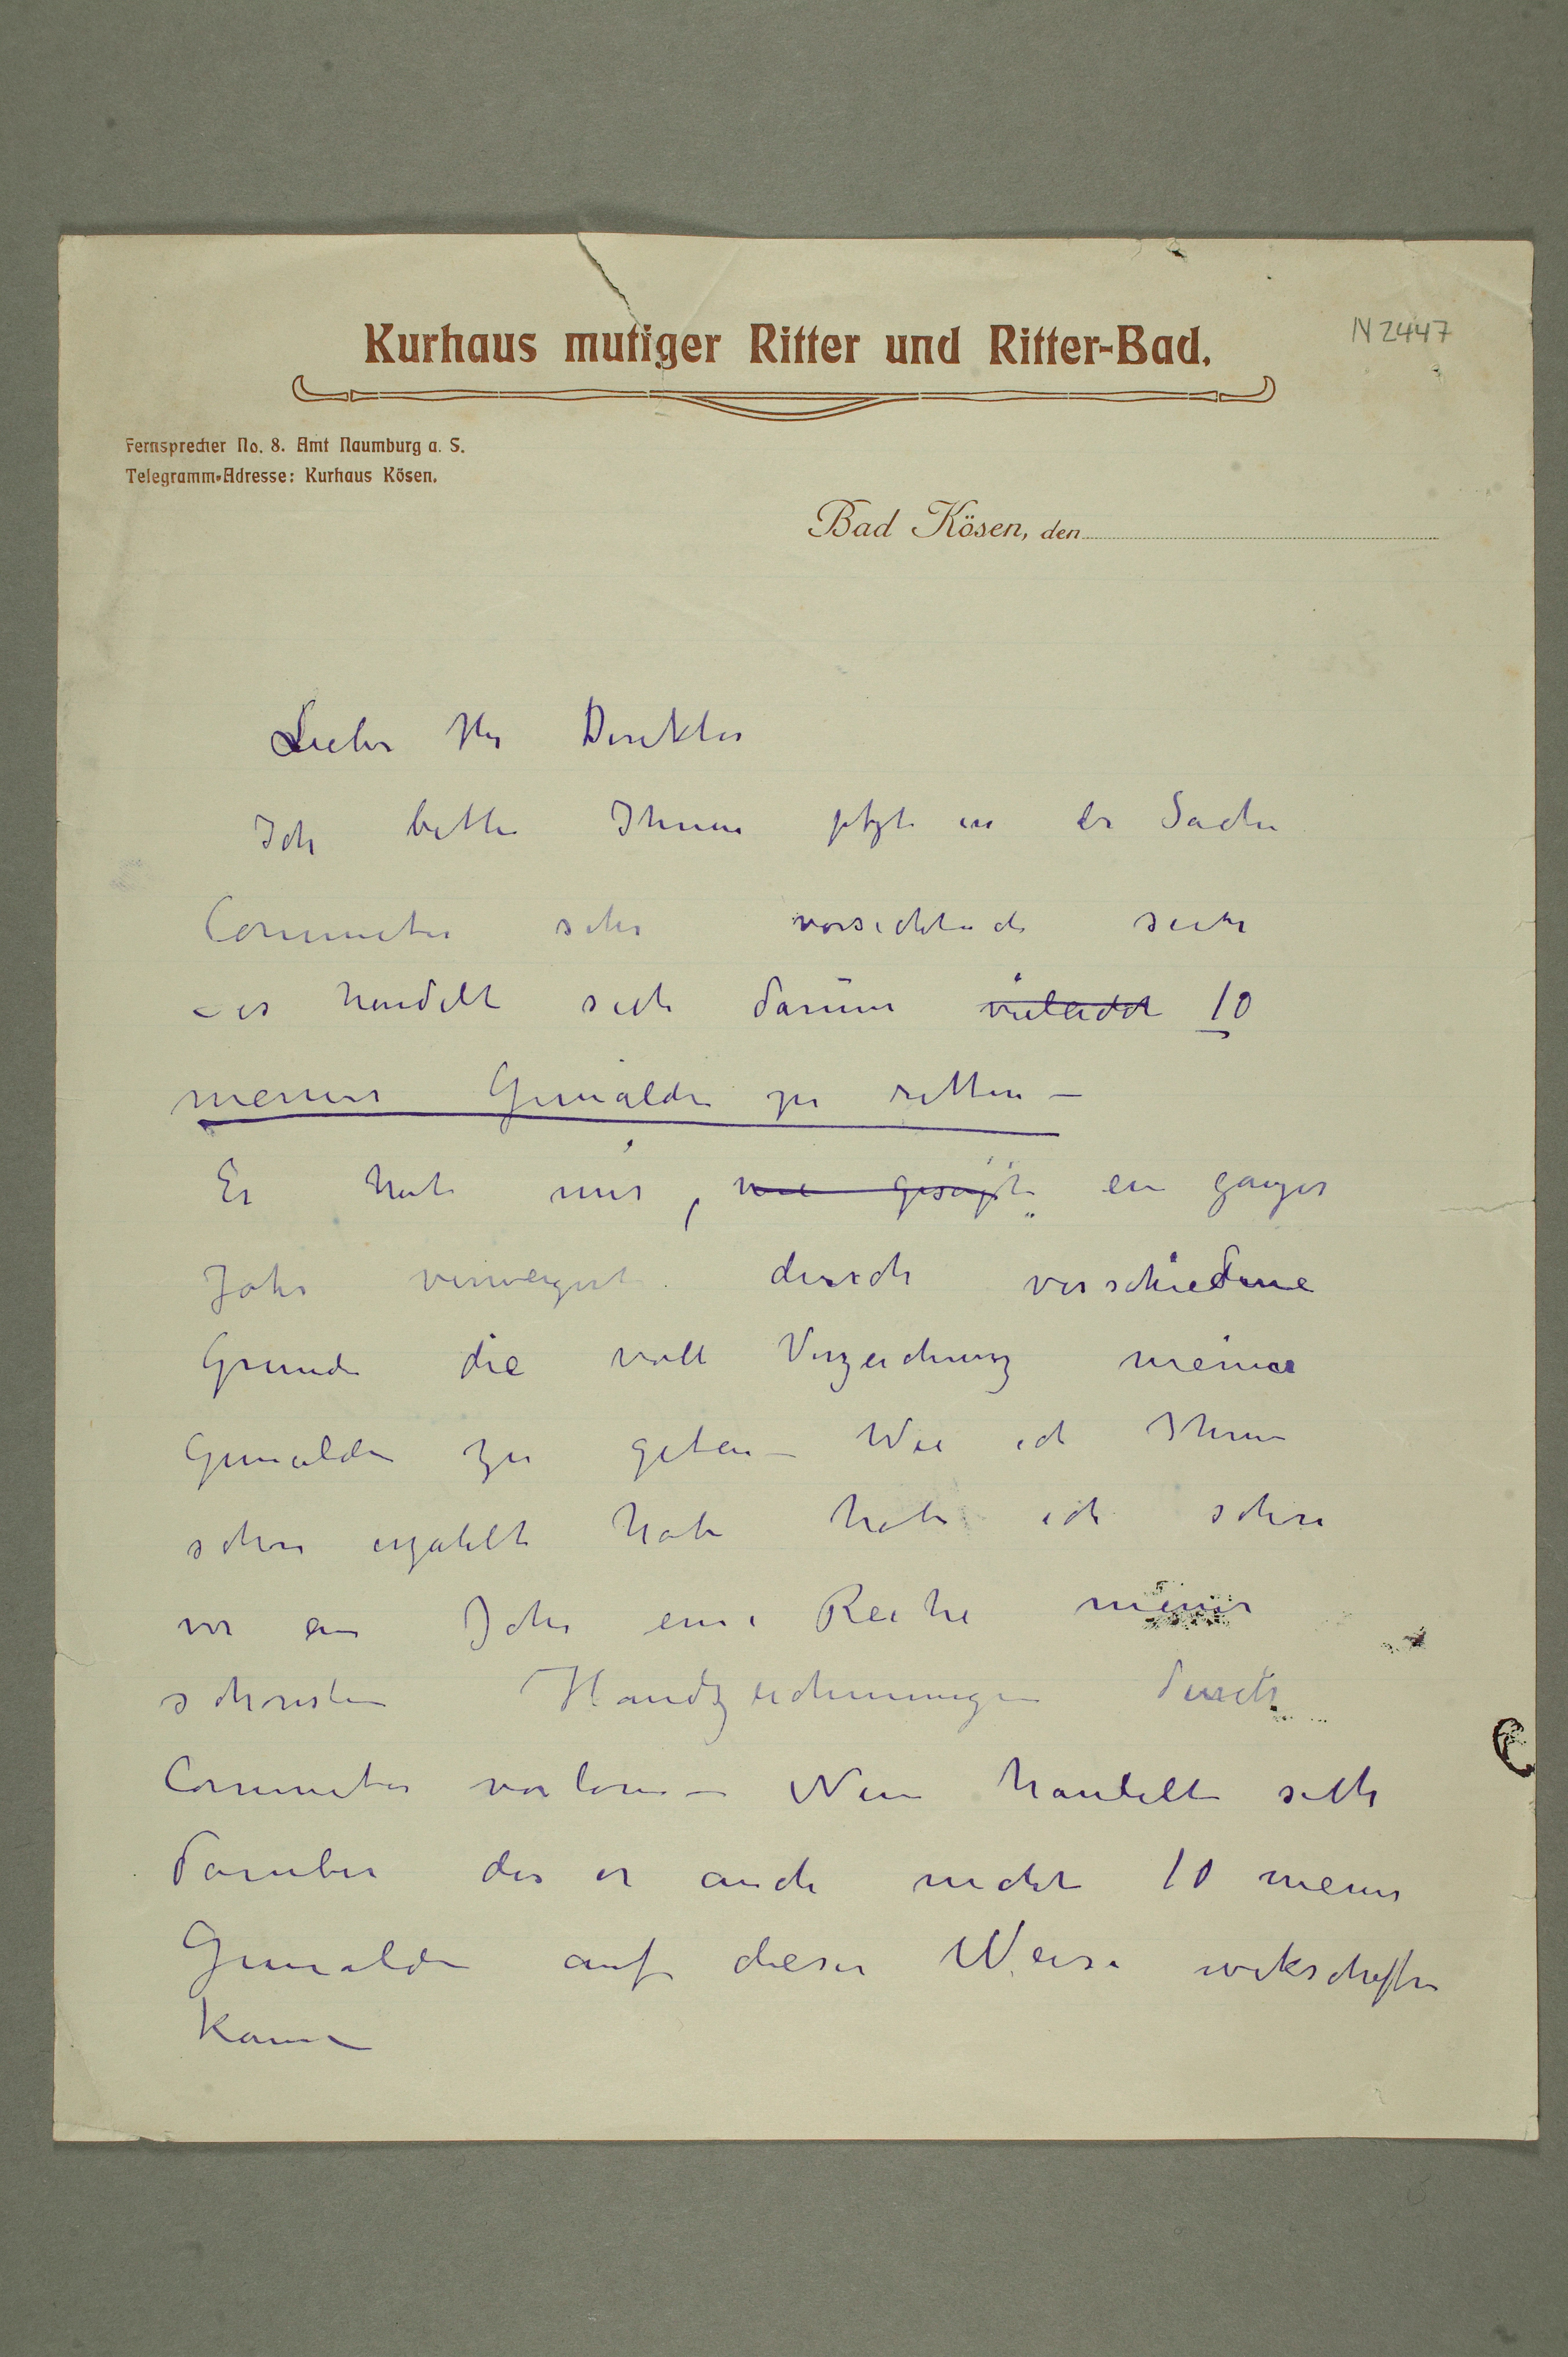 Kurhaus mutiger Ritter und Ritter-Bad.
N 2447
Fernsprecher No. 8. Amt Naumburg a. S.
Telegramm-Adresse: Kurhaus Kösen.
Bad Kösen, den
Lieber Hr Direktor
Ich bitte Ihnen jetzt in der Sache
Commeter sehr vorsichtich sein
– es handelt sich darum vieleicht 10
meiner Gemälde zu retten –
Er hat mir, wie gesagt ein ganzes
Jahr verweigert durch verschiedene
Grunde die voll Verzeichnung meiner
Gemälden zu geben – Wie ich Ihnen
schon erzahlt habe habe ich schon
vor ein Jahr eine Reihe meiner
schonsten Handzeichnungen durch
Commeter verloren – Nun handelt sich
daruber das er auch nicht 10 meiner
Gemalde auf dieser Weise wekschaffen
kann –